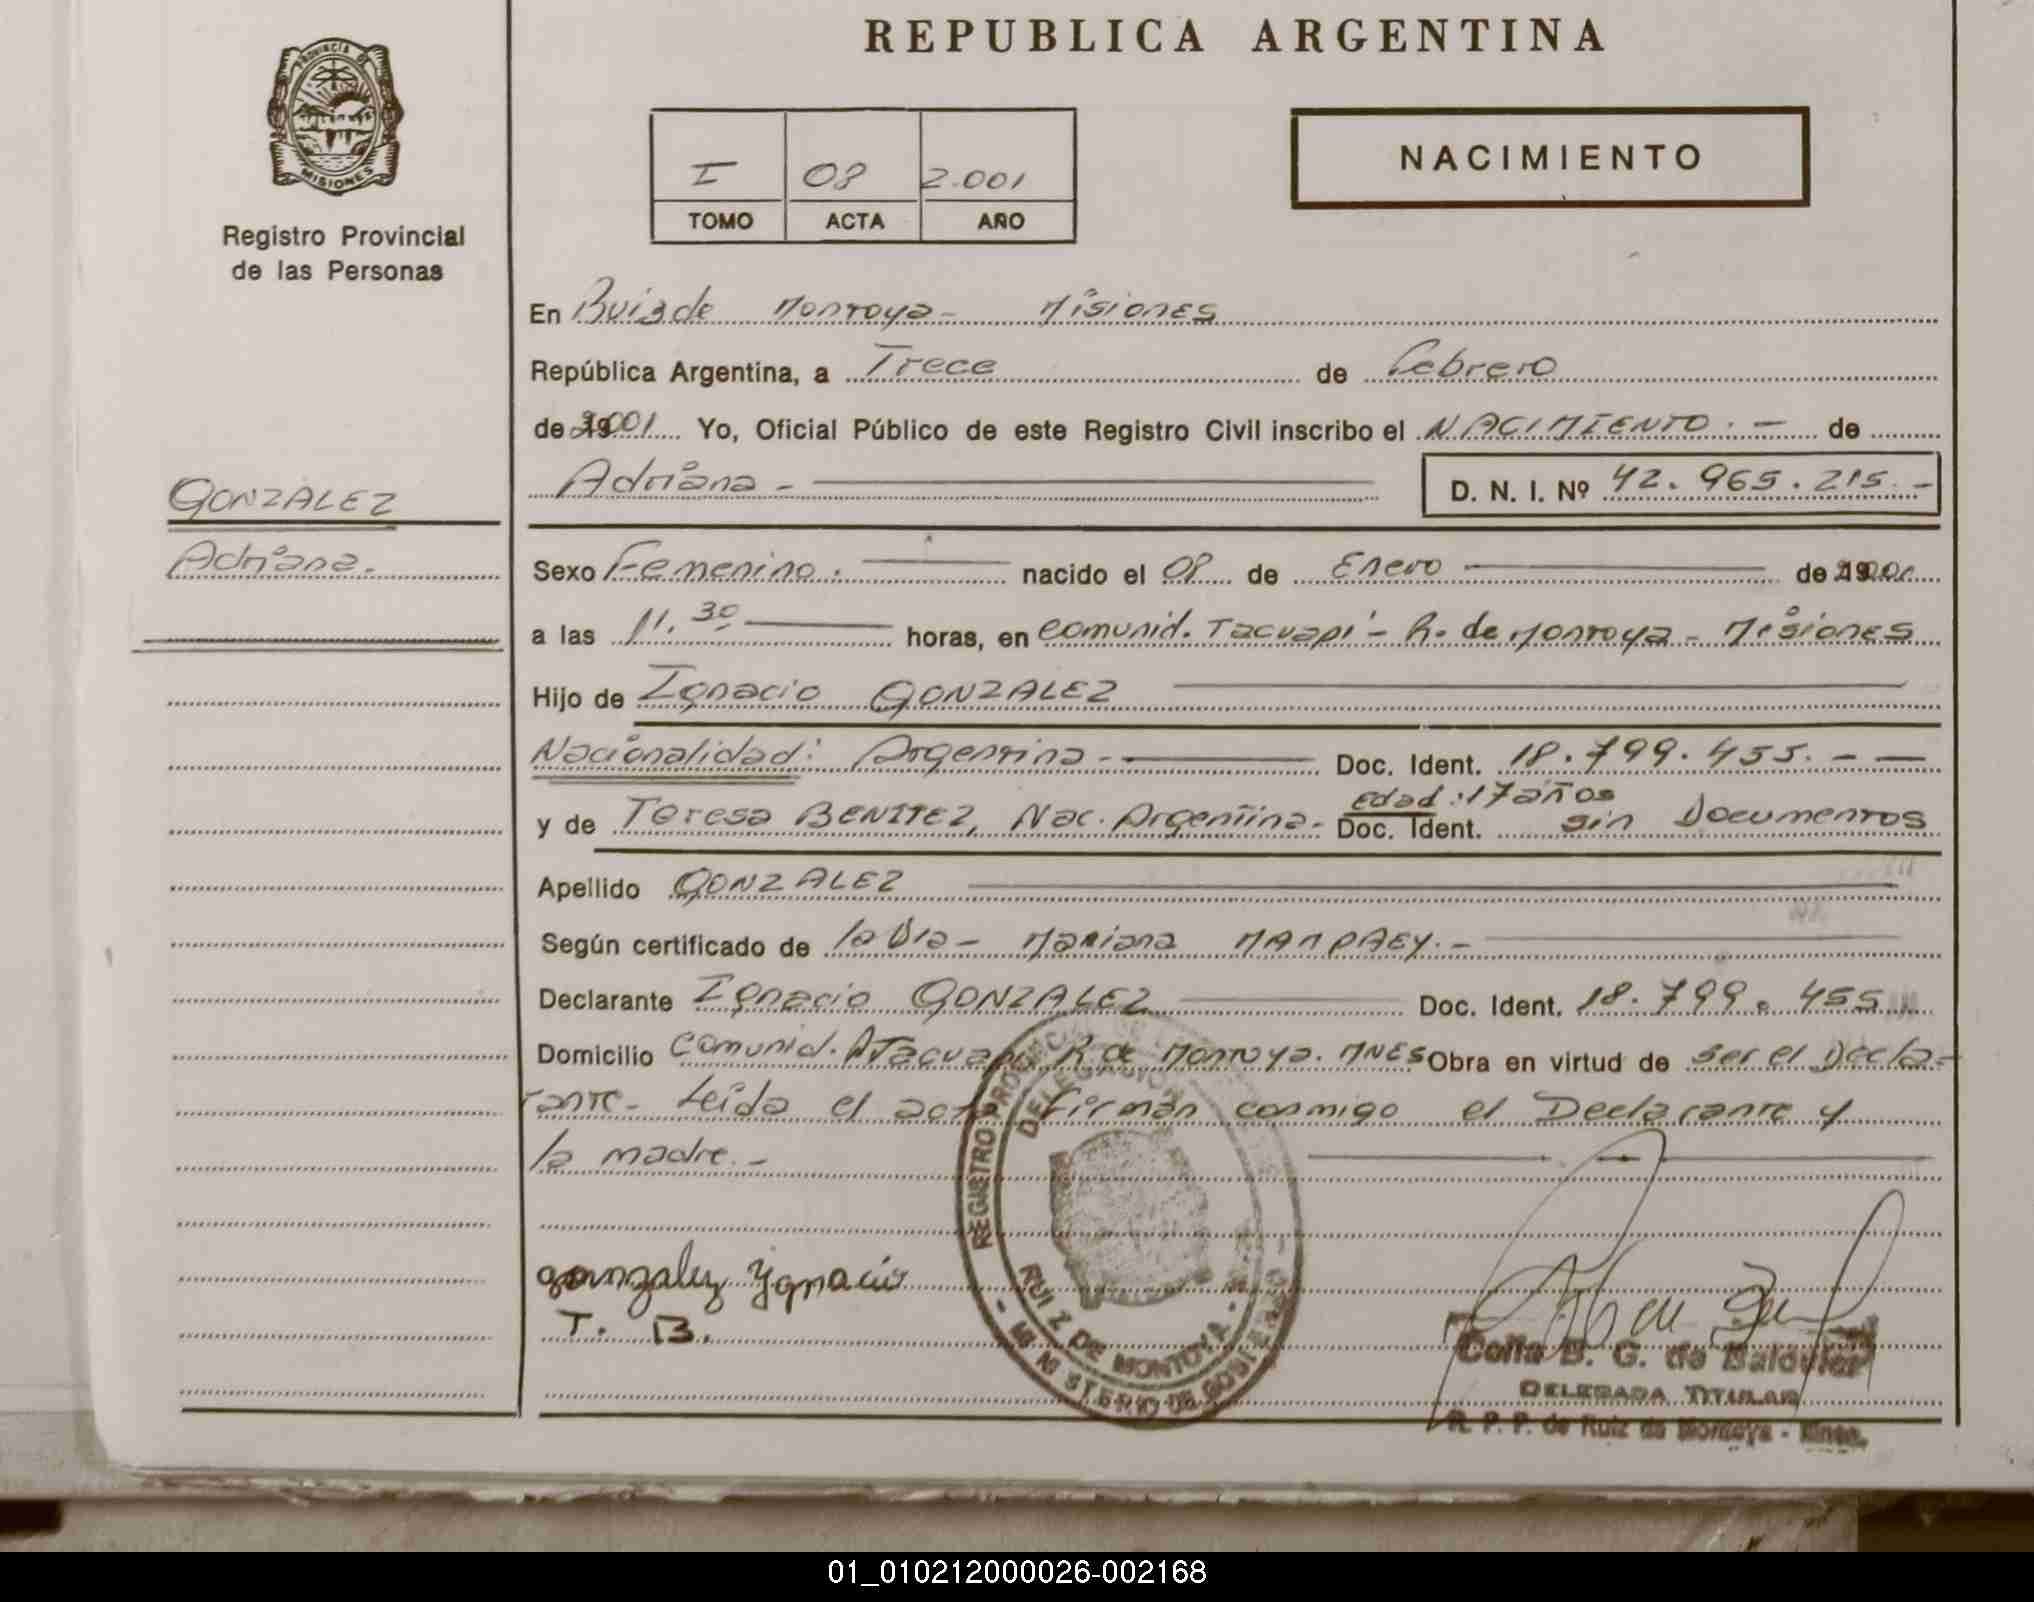 REPUBLICA ARGENTINA
PROVINCIA DE
MISIONES
Registro Provincial
de las Personas
I 08 2.001
TOMO ACTA AÑO
NACIMIENTO
En Ruiz de Montoya - Misiones
República Argentina, a Trece de Febrero
de 2001 Yo, Oficial Público de este Registro Civil inscribo el NACIMIENTO. - de
Adriana - D. N. I. Nº 42. 965. 215. -
GONZALEZ
Adriana.
Sexo Femenino. nacido el 08 de Enero de 2001
a las 11,30 horas, en comunid. Tacuapi - R. de Montoya - Misiones
Hijo de Ignacio GONZALEZ
Nacionalidad: Argentina - Doc. Ident. 18. 799. 455. - -
Edad: 17 años
y de Teresa BENITEZ, Nac. Argentina. Doc. Ident. sin Documentos
Apellido GONZALEZ
Según certificado de la Dra - Mariana MAMPAEY. -
Declarante Ignacio GONZALEZ Doc. Ident. 18. 799. 455
Domicilio Comunid. Tacuapi R. de Montoya. MNES Obra en virtud de ser el Decla-
rante - Leída el acta firman conmigo el Declarante y
la madre. -
gonzalez Ygnacio
T. B.
REGISTRO PROVINCIAL DE
DELEGACION
RUIZ DE MONTOYA
MINISTERIO DE GOBIERNO
B. G. de
DELEGADA TITULAR
R. P. P. de Ruiz de Montoya - Mnes.
01_010212000026-002168